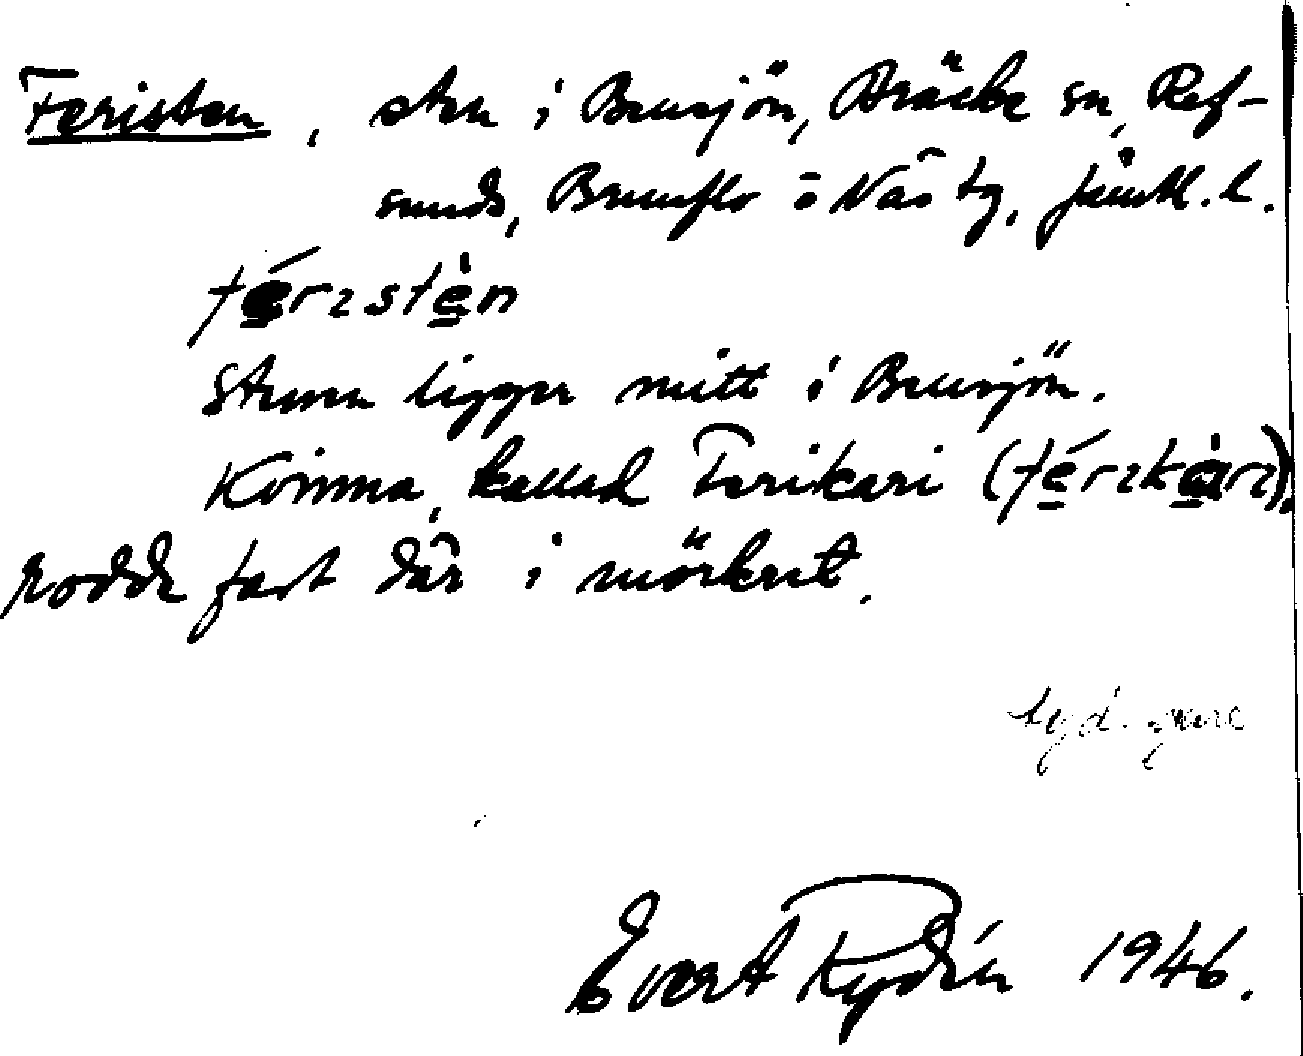 Feristen, sten i Bensjön, Bräcke sn, Ref-
sunds, Brunflo o Näs tg, Jämtl. l.
férɩstèn
Stenen ligger mitt i Bensjön.
Kvinna, kallad Ferikari (férɩkàrɩ),
rodde fast där i mörkret.
tyd.
Evert Rydén 1946.